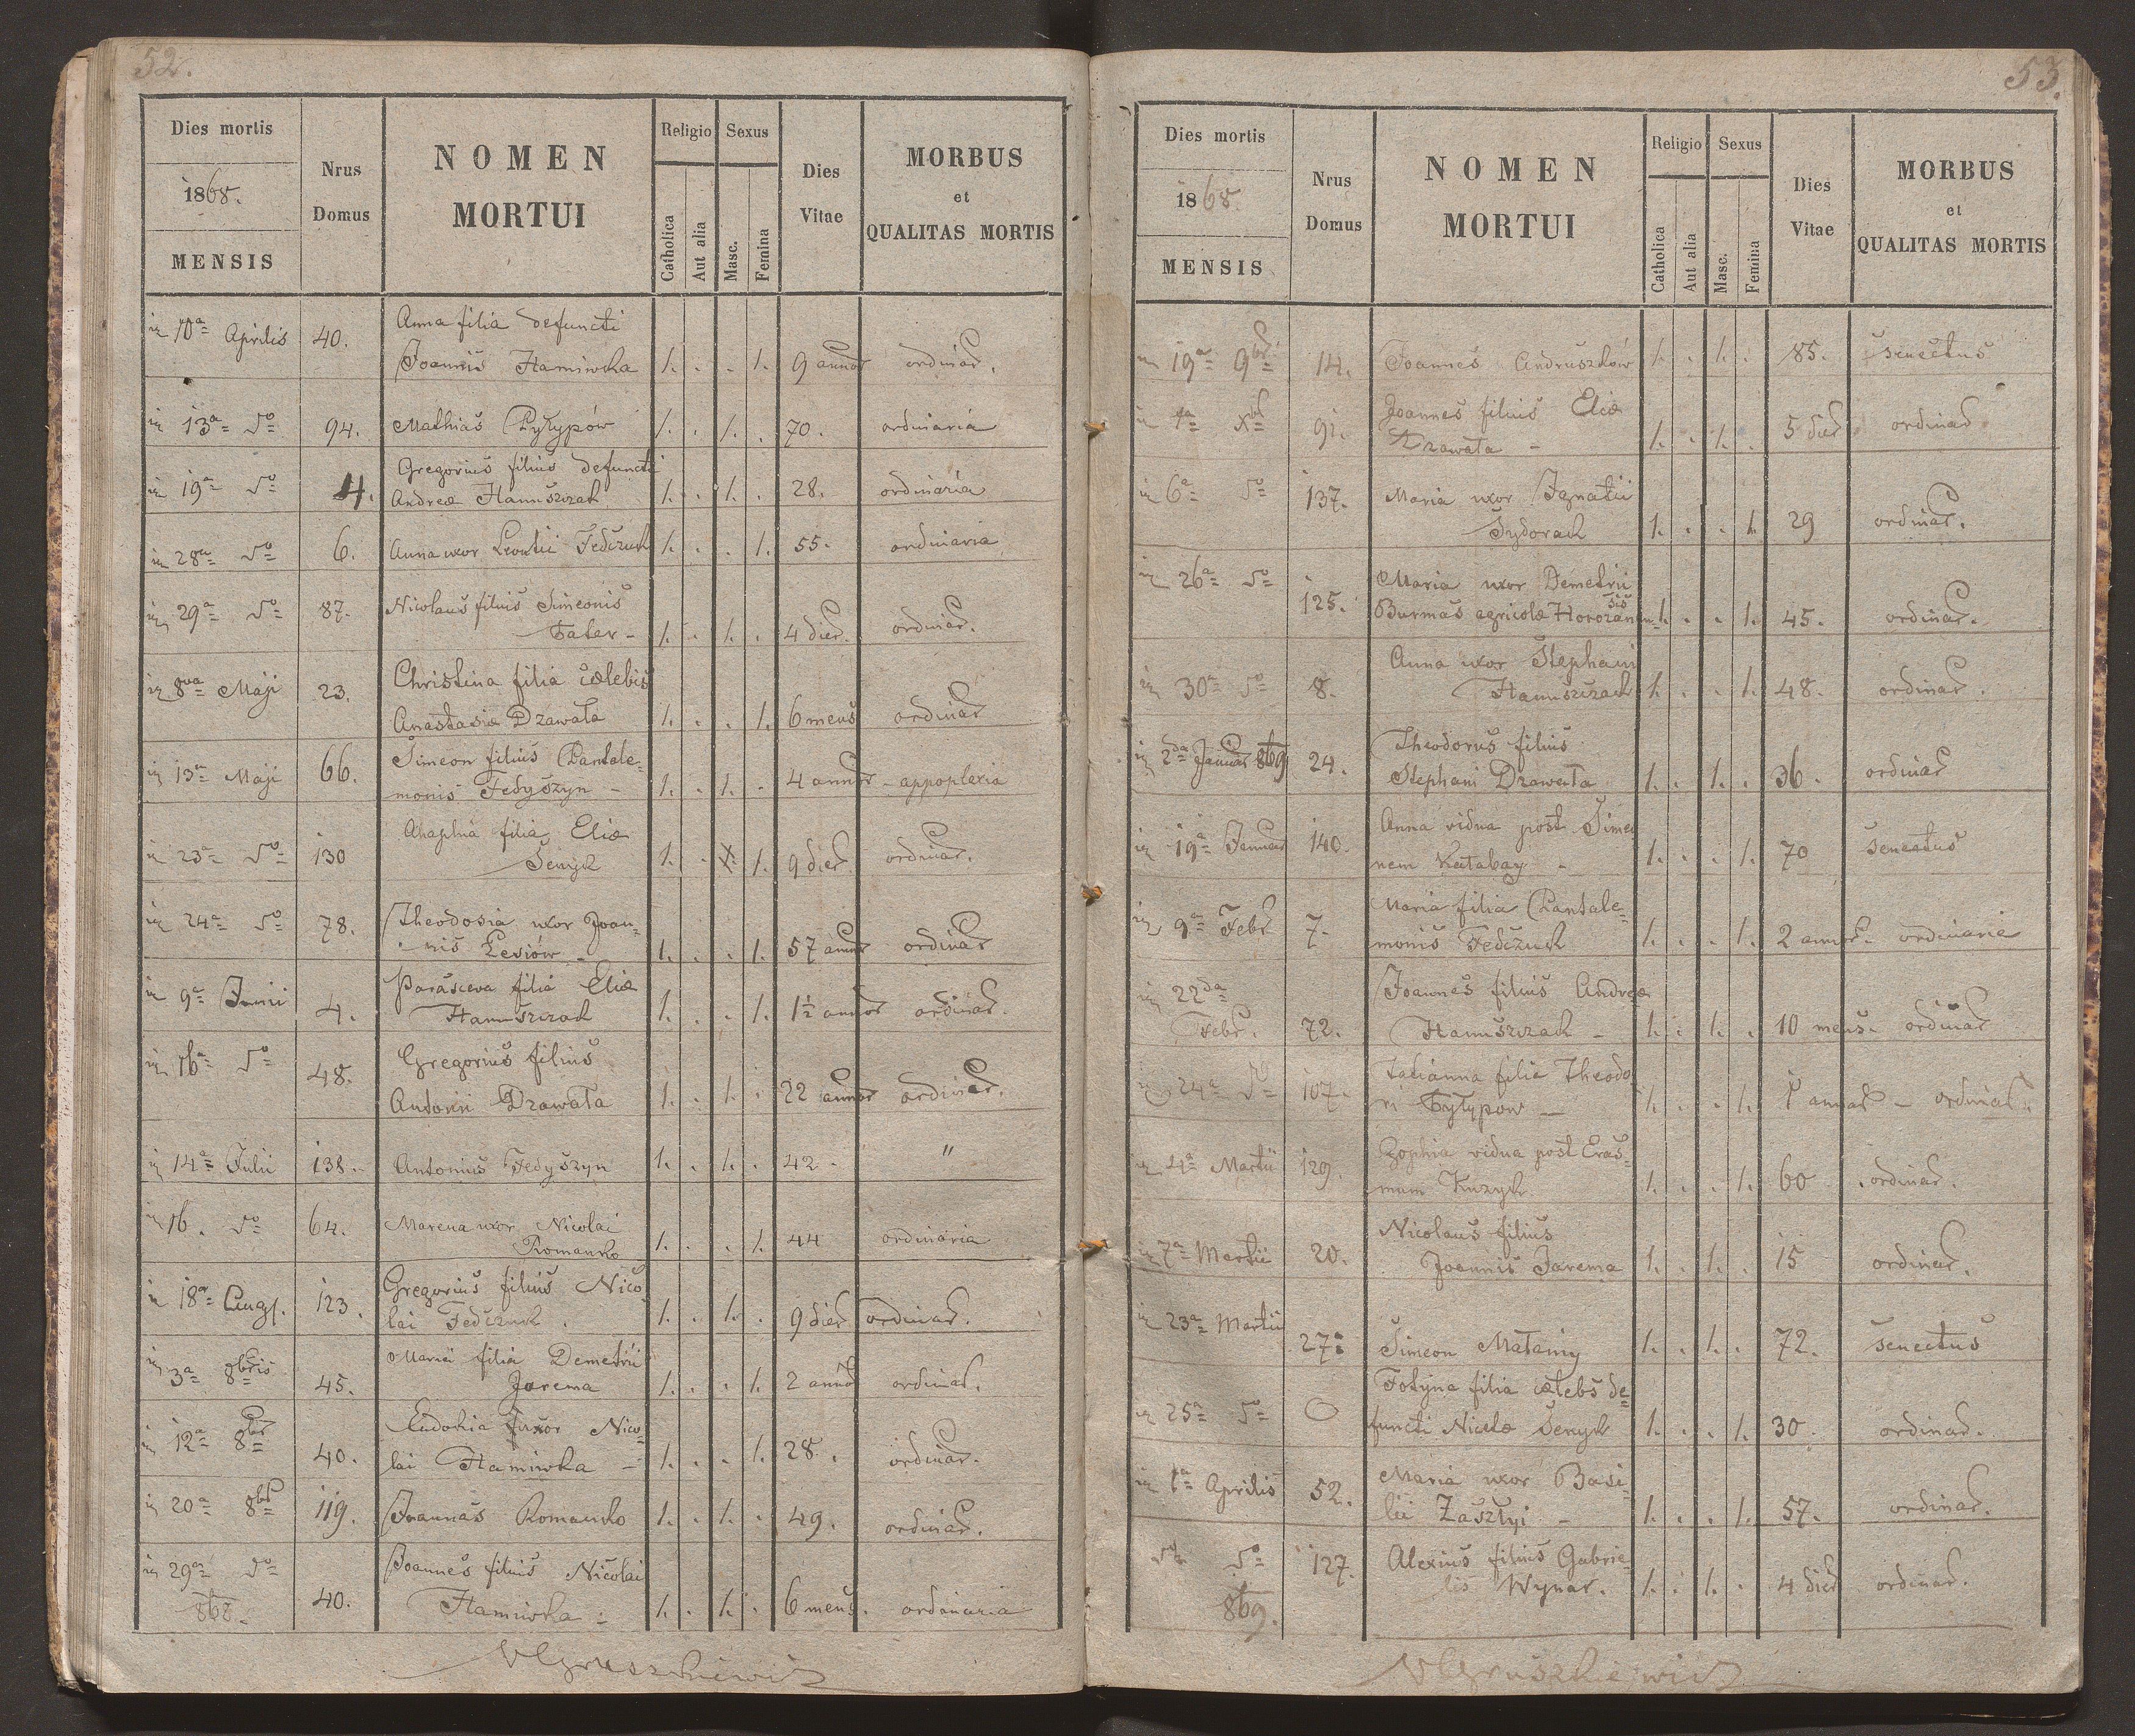 52.
Dies mortis
1868.
MENSIS
Nrus
Domus
NOMEN
MORTUI
Religio
Catholica
Aut alia
Sexus
Masc.
Femina
Dies
Vitae
MORBUS
et
QUALITAS MORTIS
in 10a Aprilis 40. Anna filia defuncti
Joannis Hamiwka 1. . . 1. 9 annor ordinar.
in 13a do 94. Mathias Pyłypów 1. . 1. . 70. ordinaria
in 19a do 4. Gregorius filius defuncti
Andreæ Hanuszczak 1. . 1. . 28. ordinaria
in 28va do 6. Anna uxor Leontii Fedczuk 1. . . 1. 55. ordinaria
in 29a do 87. Nicolaus filius Simeonis
1. . 1. . 4 dier. ordinar.
in 8va Maji 23. Christina filia cælebis
Anastasiæ Drawała 1. . . 1. 6 mens ordinar
in 13a Maji 66. Simeon filius Pantale=
monis Fedyszyn – 1. . 1. . 4 annor – appoplexia
in 23a do 130 Ahaphia filia Eliæ
Senyk 1. . 1. 9 dier ordinar.
in 24a do 78. Theodosia uxor Joan=
nis Lesiów – 1. . . 1. 57 annor ordinar
in 9a Junii 4. Parasceva filia Eliæ
Hanuszczak 1. . . 1. 1½ annor ordinar.
in 16a do 48. Gregorius filius
Antonii Drawała 1. . 1. . 22 annor ordinar.
in 14a Julii 138. Antonius Fedyszyn 1. . 1. . 42 - "
in 16. do 64. Marena uxor Nicolai
Romanko 1. . . 1. 44 ordinaria
in 18a Aug. 123. Gregorius filius Nico
lai Fedczuk . 1. . 1. . 9 dier ordinar.
in 3a 8bris 45. Maria filia Demetrii
Jarema 1. . . 1. 2 annor ordinar.
in 12a 8br 40. Eudokia uxor Nico=
lai Hamiwka – 1. . . 1. 28. ordinar.
in 20a 8br 119. Joannes Romanko 1. . 1. . 49. ordinar.
in 29a do
868. 40. Joannes filius Nicolai
Hamiwka – 1. . 1. . 6 mens. ordinaria
53.
Dies mortis
1868.
MENSIS
Nrus
Domus
NOMEN
MORTUI
Religio
Catholica
Aut alia
Sexus
Masc.
Femina
Dies
Vitae
MORBUS
et
QUALITAS MORTIS
in 19a 9br 14. Joannes Andruszków 1. . 1. . 85. senectus
in 1a Xbr 91. Joannes filius Eliæ
Drawała – 1. . 1. . 5 dier ordinar
in 6a do 137. Maria uxor Ignatii
Sydorak 1. . . 1. 29 ordinar.
in 26a do 125. Maria uxor Demetrii
Burmas agricolæ Horożanensis 1. . . 1. 45. ordinar.
in 30a do 8. Anna uxor Stephani
Hanuszczak 1. . . 1. 48. ordinar.
in 2da Januar 869 24. Theodorus filius
Stephani Drawała 1. . 1. . 36. ordinar
in 19a Januar 140. Anna vidua post Simeo
nem Katabay – 1. . . 1. 70 senectus
in 9a Febr 7. Maria filia Pantale=
monis Fedczuk 1. . . 1. 2 annor. ordinaria
in 22da
Febr. 72. Joannes filius Andreæ
Hanuszczak – 1. . 1. . 10 mens. ordinar
in 24a do 107. Tatianna filia Theodo
ri Pyłypow – 1. . . 1. 1 annor – ordinar.
in 4a Martii 129. Zophia vidua post Eras=
mum Kuzyk 1. . . 1. 60 ordinar.
in 7a Martii 20. Nicolaus filius
Joannis Jarema 1. . 1. . 15 ordinar.
in 23a Martii 27. Simeon Matviiy 1. . 1. . 72. senectus
in 25a do 0 Fotyna filia cælebs de=
functi Nicolæ Senyk 1. . . 1. 30. ordinar.
in 1a Aprilis 52. Maria uxor Basi=
lii Zaszłyi – 1. . . 1. 57. ordinar.
do do
869. 127. Alexius filius Gabrie
lis Wynar. 1. . 1. . 4 dier ordinar.